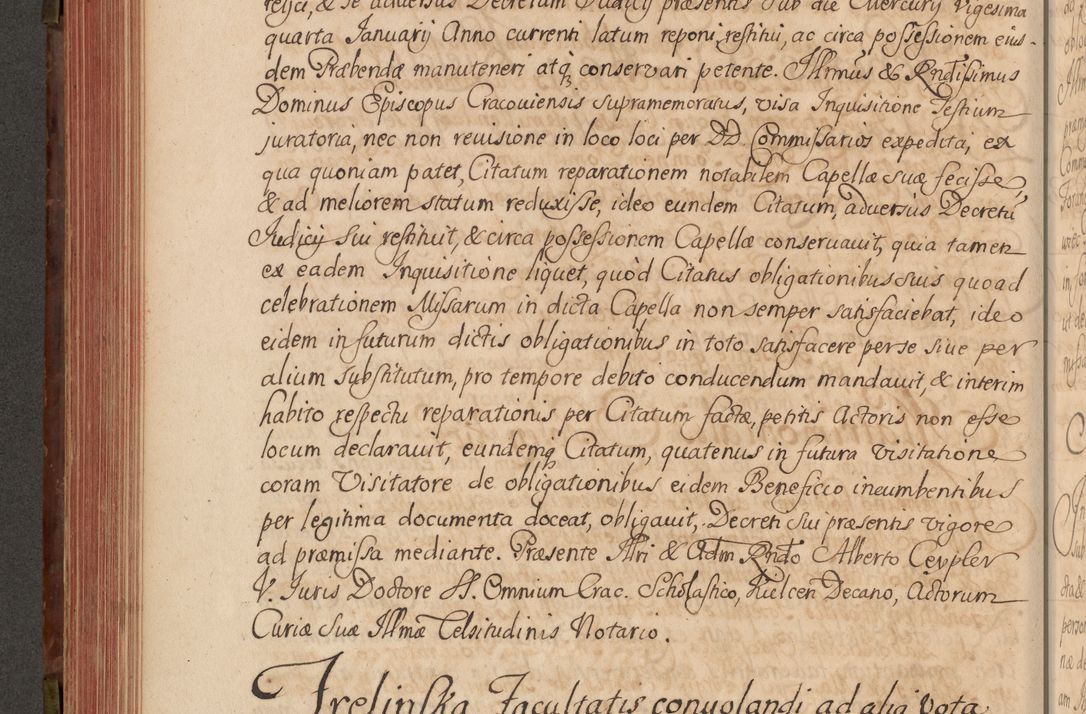 rejici, & se adversus Decretum Iudicij præsentis sub die Mercurij Vigesima
quarta Ianuarij Anno currenti latum reponi, restitui, ac circa possessionem eius-
dem Præbendæ manuteneri atq conservari petente. Illmus & Rndissimus
Dominus Episcopus Cracoviensis supramemoratus, visa Inquisitione Testium
juratoria, nec non revisione in loco loci per DD Commissarios expedita, ex
qua quoniam patet, Citatum reparationem notabilem Capellæ suæ fecisse,
& ad meliorem statum reduxisse, ideo eundem Citatum, adversus Decretũ
Iudicij sui restituit, & circa possessionem Capellæ conservauit, quia tamen
ex eadem Inquisitione liquet, quòd Citatus obligationibus suis quoad
celebrationem Missarum in dicta Capella non semper satisfaciebat, ideo
eidem in futurum dictis obligationibus in toto satisfacere per se siue per
alium substitutum, pro tempore debito conducendum mandauit, & interim
habito respectu reparationis per Citatum factæ, petitis Actoris non esse
locum declarauit, eundemq Citatum, quatenus in futura visitatione
coram Visitatore de obligationibus eidem Beneficio incumbentibus
per legitima documenta doceat, obligauit, Decreti sui præsentis vigore
ad præmissa mediante. Præsente Illri & Adm. Rndo Alberto Ceypler
V. Iuris Doctore SS. Omnium Crac. Scholastico, Kielcen Decano, Actorum
Curiæ Suæ Illmæ Celsitudinis Notario.
Irelinska Facultatis convolandi ad alia vota